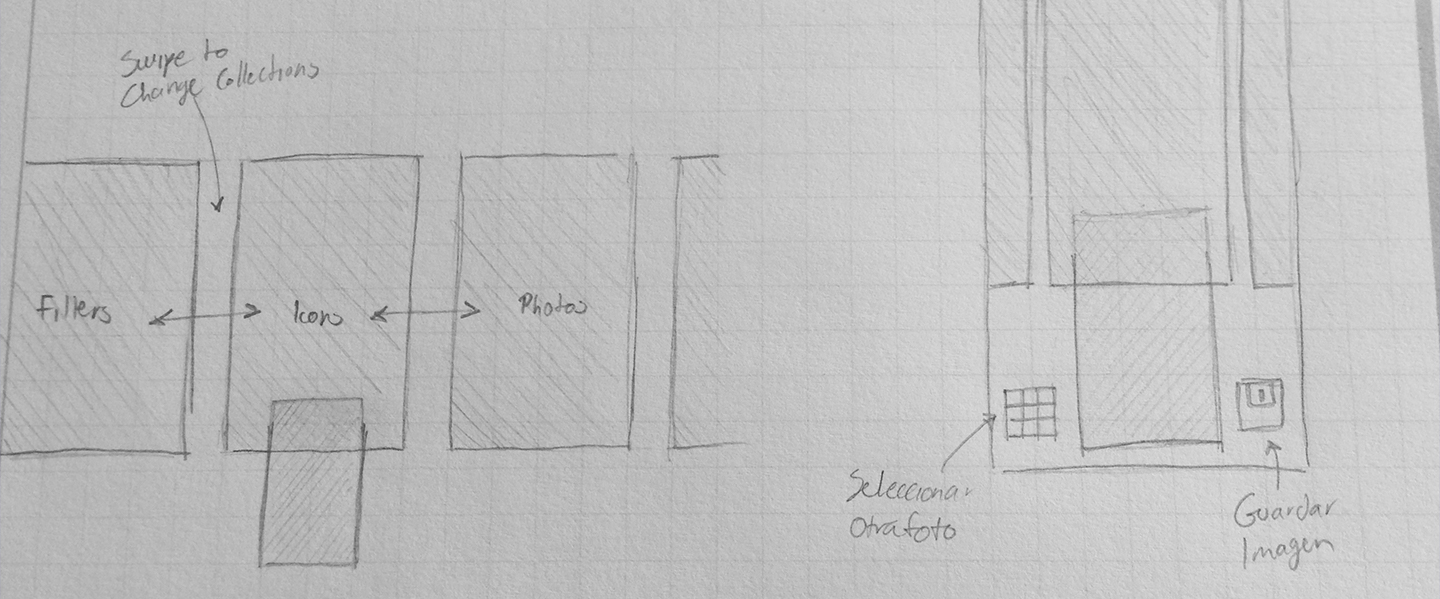 Swipe to
Change Collections
Fillers
Icons
Photos
Seleccionar
Otra foto
Guardar
Imagen